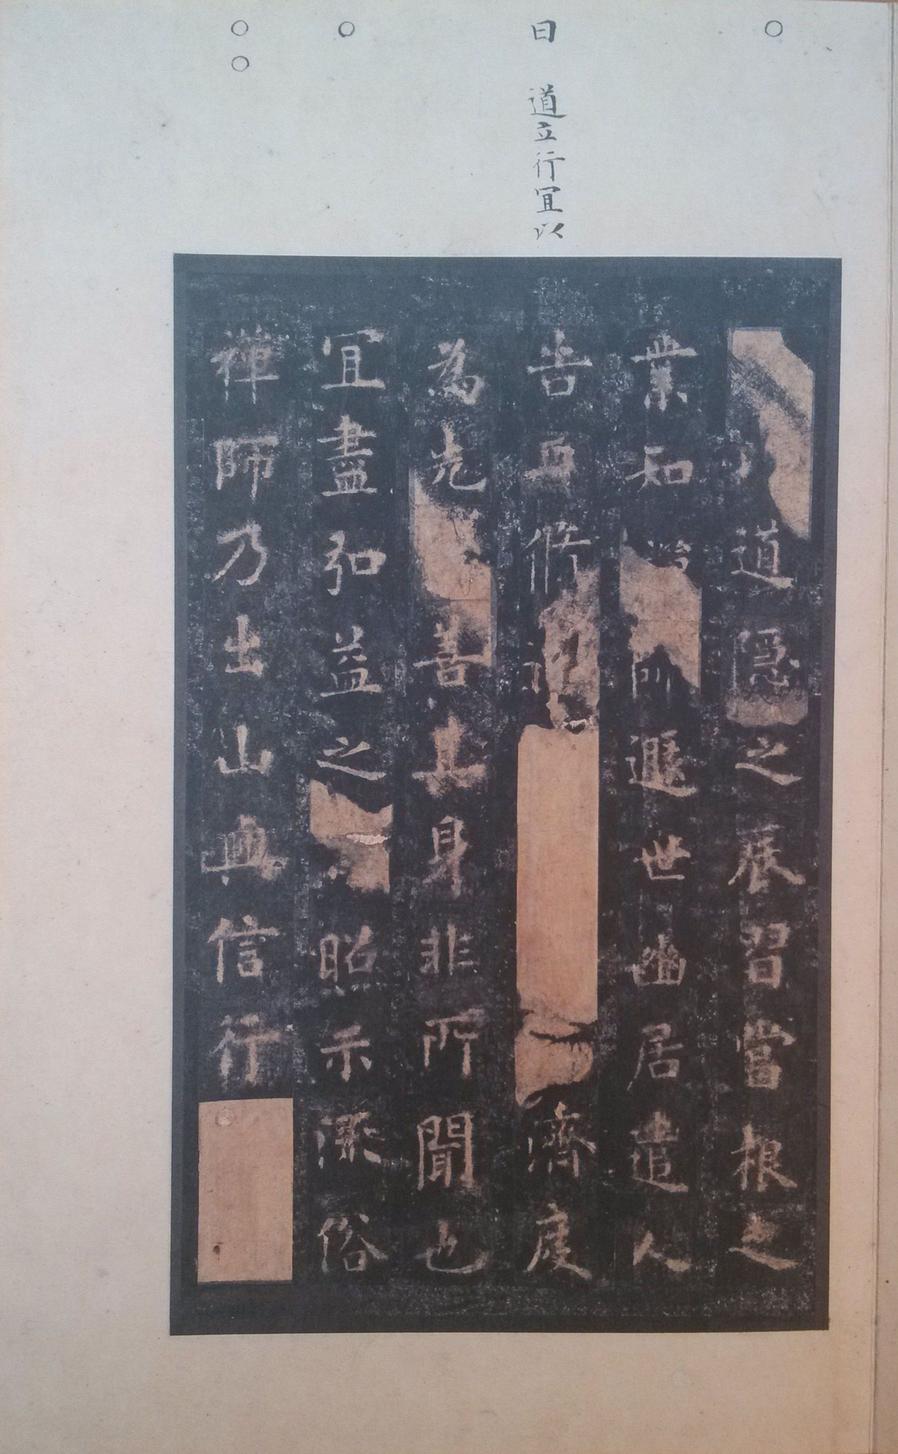 ○
曰 道立行宜以
○
○○
道隱之辰習當根之
業知遯世幽居遣人
告脩濟度
為先善其身非所聞也
宜盡弘益之昭示流俗
禪師乃出山與信行